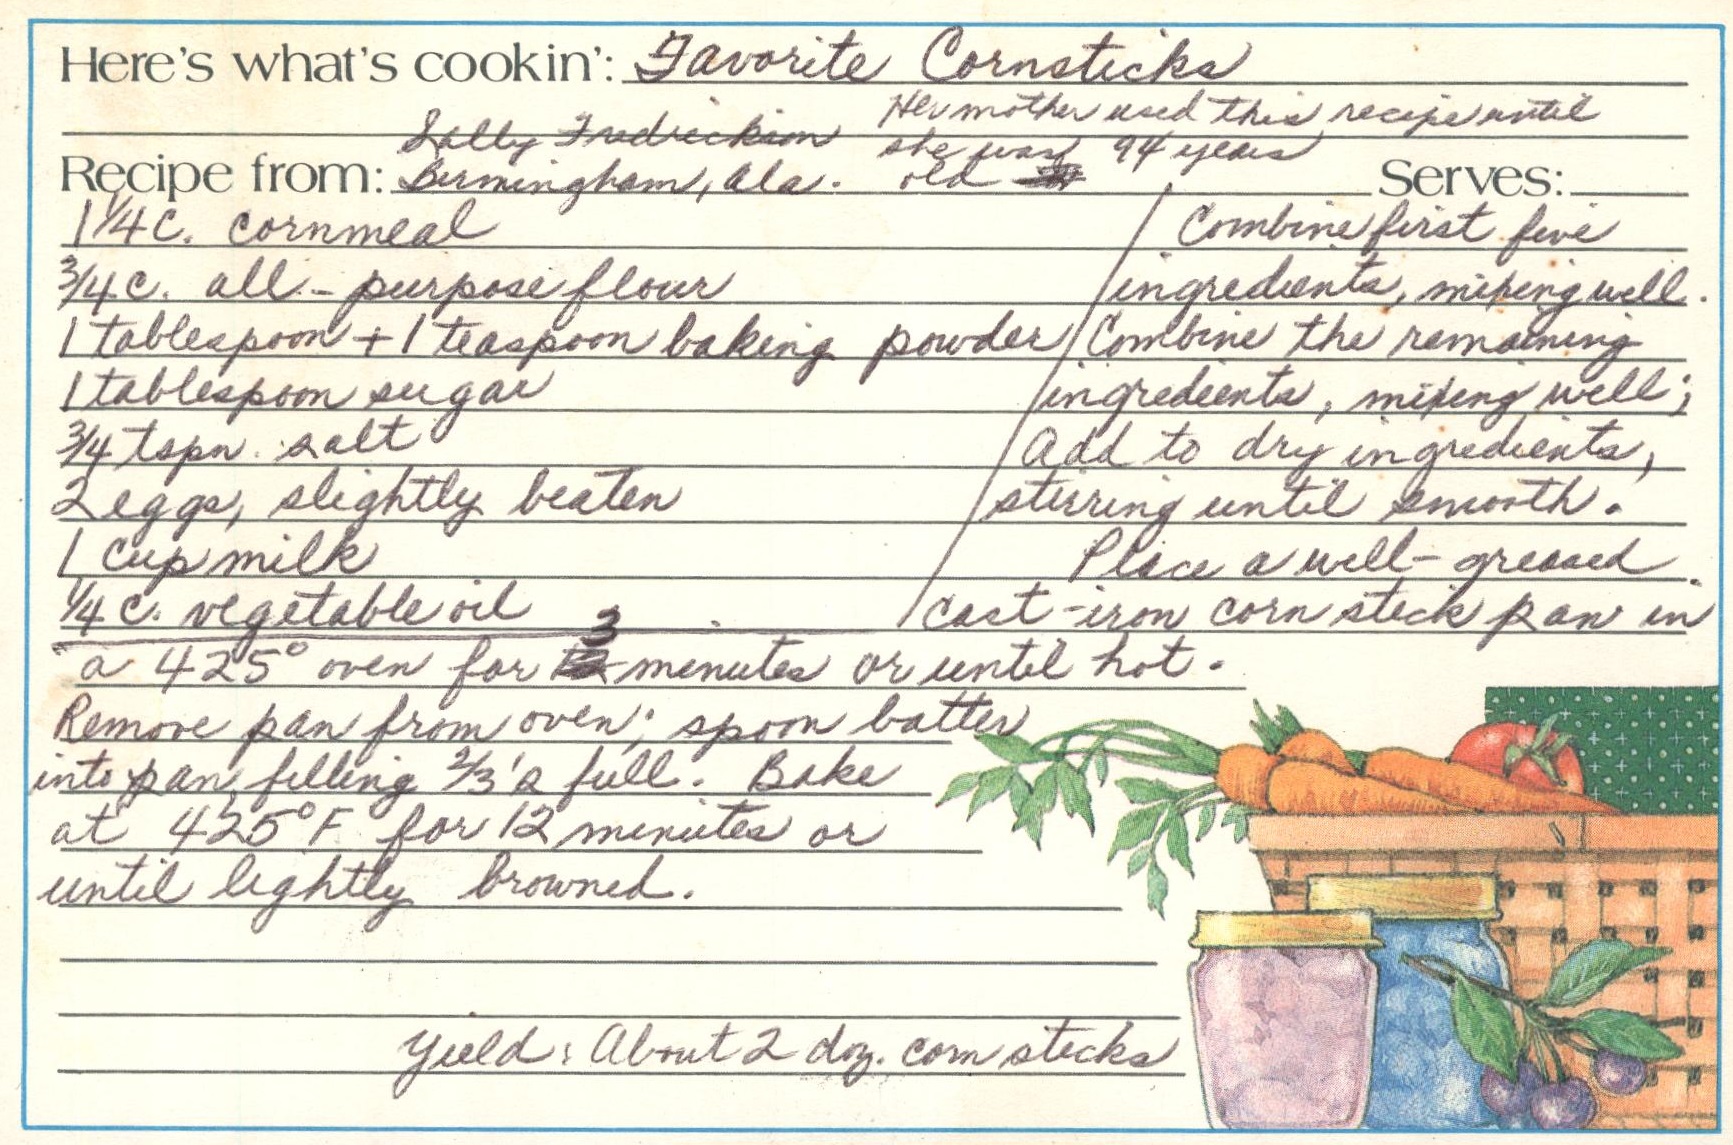 Here's what's cookin': Favorite Cornsticks
Her mother used this recipe until
Sally Fredrickson she was 94 years
Recipe from: Birmingham, Ala. old Serves:
1 1/4 C. cornmeal
3/4 c. all-purpose flour
1 tablespoon + 1 teaspoon baking powder
1 tablespoon sugar
3/4 tspn. salt
2 eggs, slightly beaten
1 cup milk
1/4 c. vegetable oil
Combine first five
ingredients, mixing well.
Combine the remaining
ingredients, mixing well;
Add to dry ingredients,
stirring until smooth.
Place a well-greased
cast-iron corn stick pan in
a 425° oven for 3 minutes or until hot.
Remove pan from oven; spoon batter
into pan, filling 2/3's full. Bake
at 425°F for 12 minutes or
until lightly browned.
Yield: About 2 doz. corn sticks